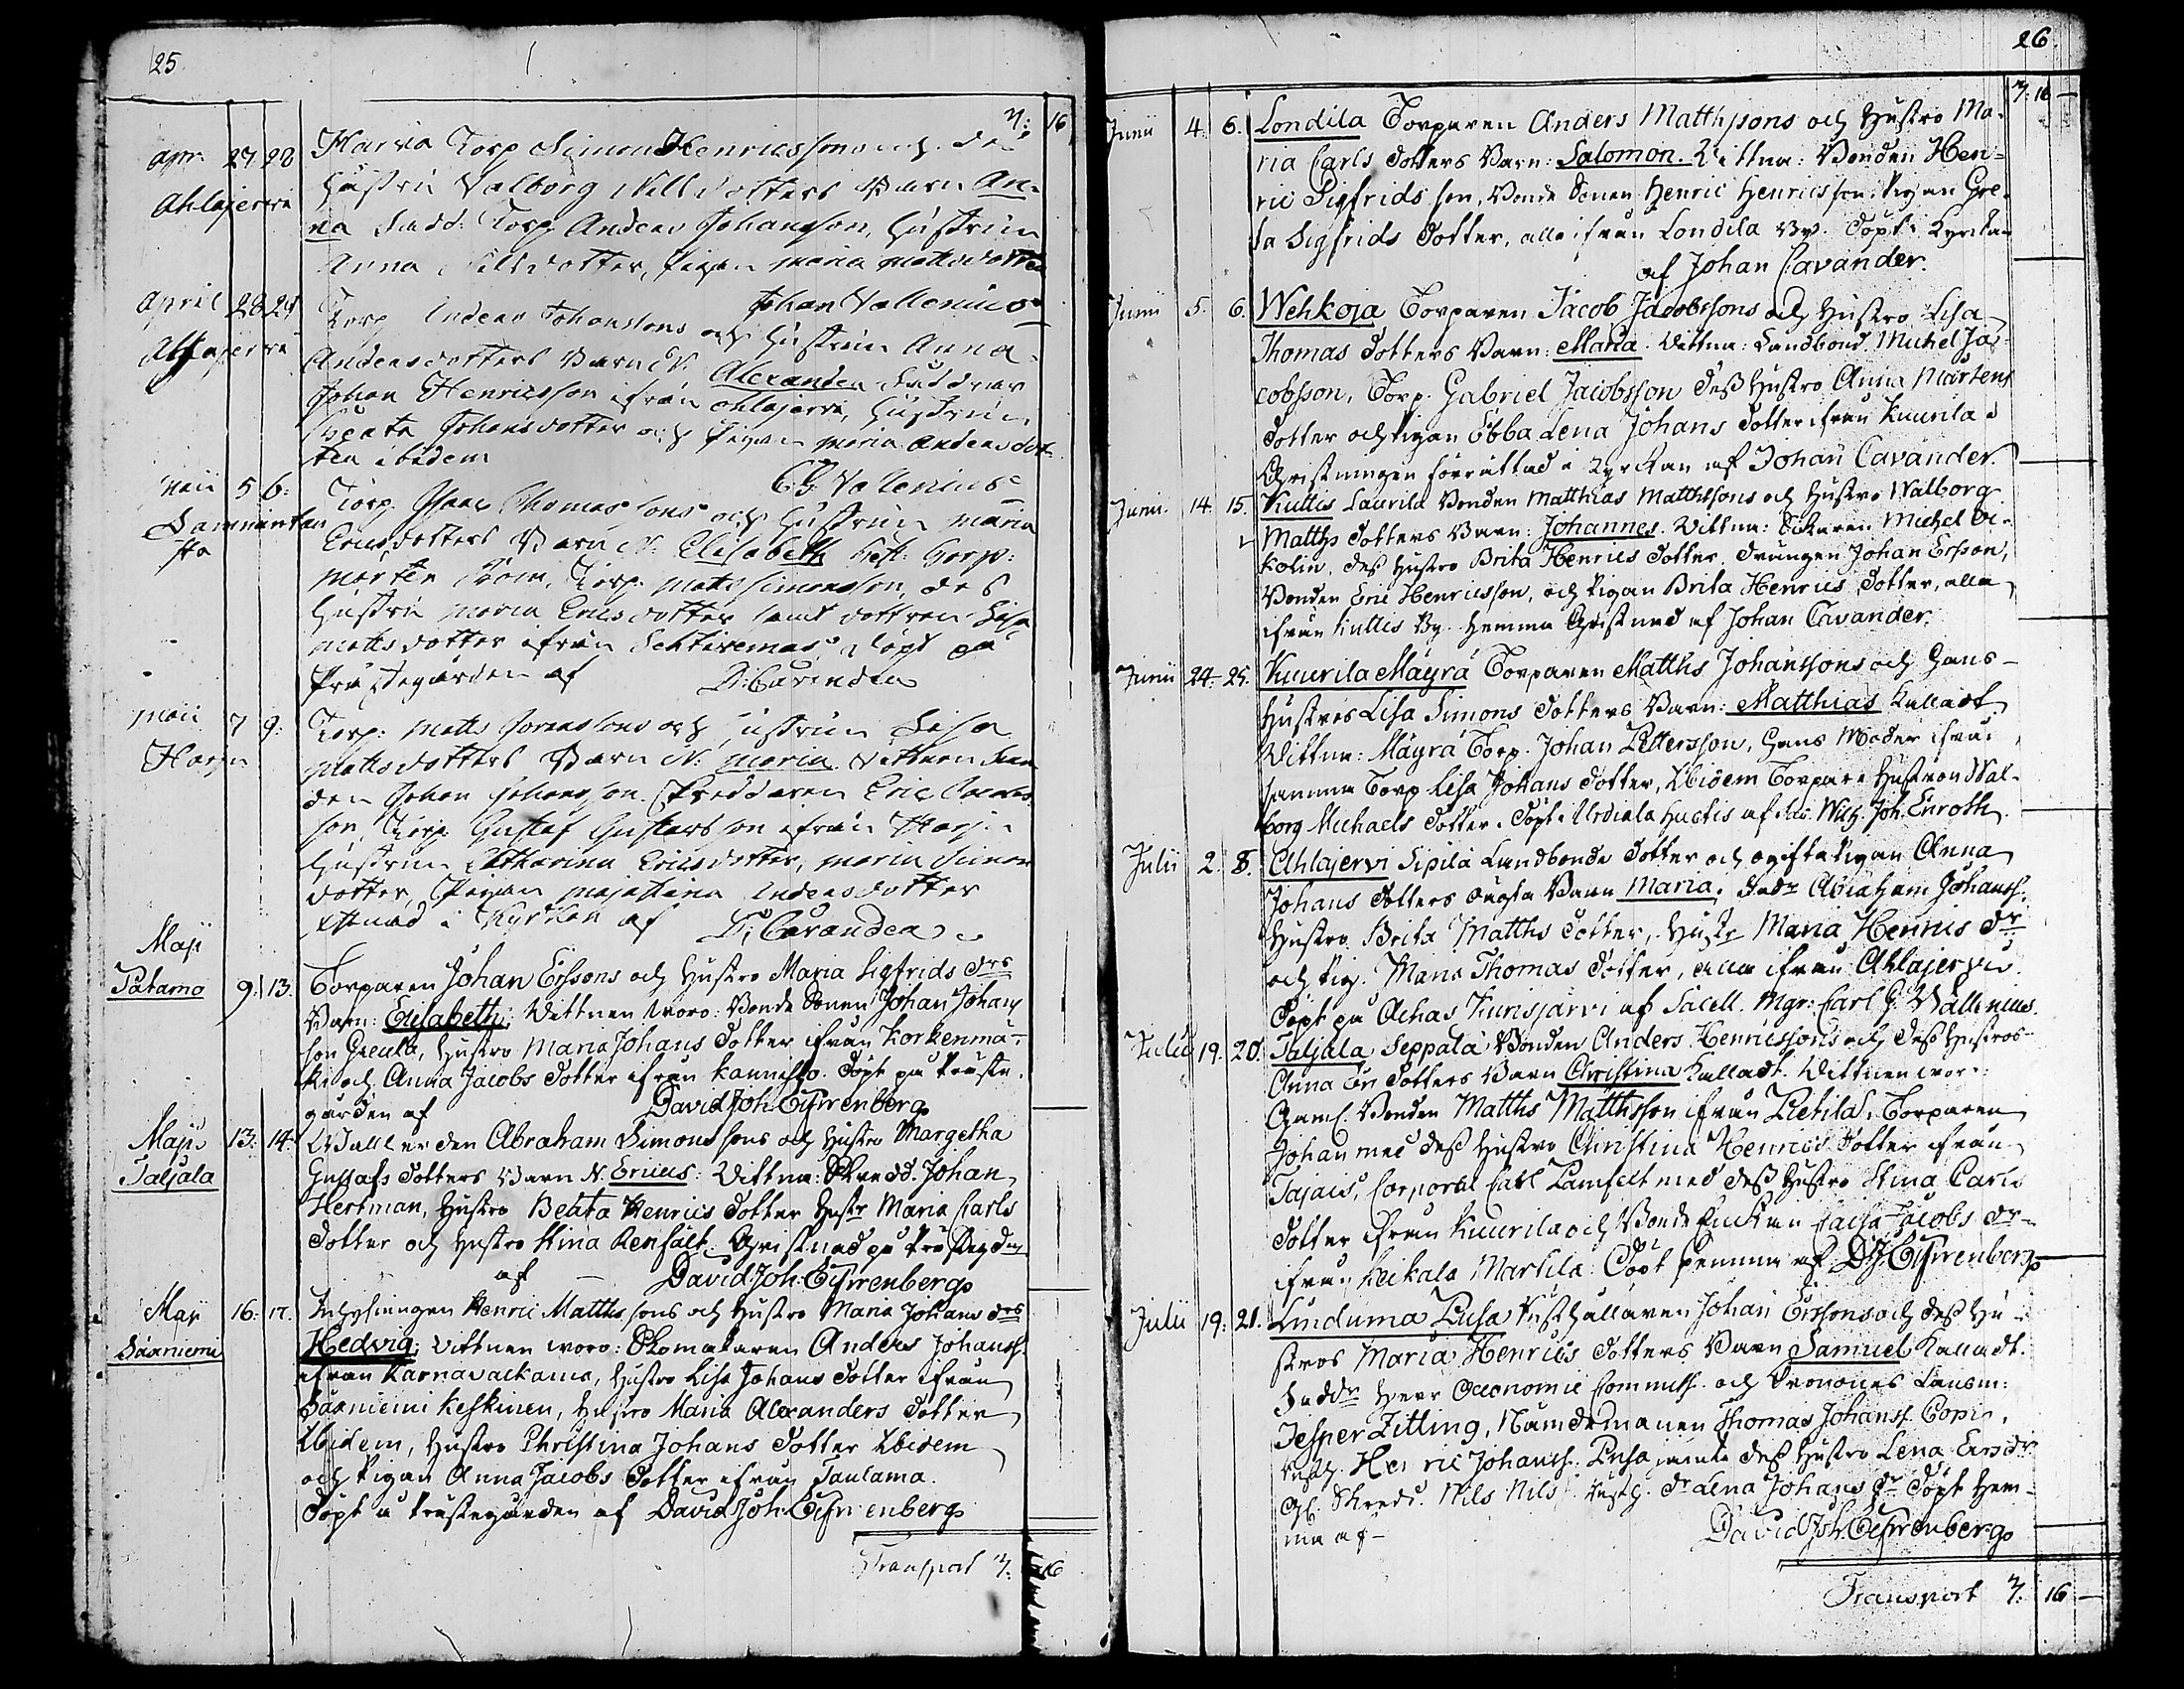 25
7: 16
Apr. 27 28 Harva Torp Simon Henricssons och des
Ahlajerwi hustru Valborg Nillsdotters Barn An-
na Fadd. Torp. Anders Johansson, hustrun
Anna Nillsdotter, pigan Maria Mattsdotter
Johan Vallenius
April 28 29 Torp Anders Johanssons och hustrun Anna
Ahlajerwi Andersdotters Barn N. Alexander Faddrar
Johan Henricsson ifrån Ahlajervi, hustrun
Beata Johansdotter och Pigan Maria Andersdot-
ter ibidem
CG Vallenius
Maii 5 6: Torp. Isaac Thomassons och hustrun Maria
Ericsdotters Barn N: Elisabeth
Mårten, Torp. Matts Simonsson, des
hustru Maria Ericsdotter samt dottren Lisa
Mattsdotter ifrån döpt på
Prästegården af D: Cavander
Maii 7 9: Torp: Matts Jöranssons och hustrun Lisa
Harju Mattsdotters Barn N: Maria Vittnen
Johan Johansson Skreddaren Eric
son, Torp. Gustaf Gustavsson ifrån Harju
hustrun Catharina Ericsdotter, Maria Simons
dotter, Pigan Maja Stina Andersdotter
i Kyrkan af D: Cavander
Maji
Påtamo 9: 13. Torparen Johan Erssons och Hustro Maria Sigfrids drs
Barn: Elisabeth: Wittnen woro: Bonde Sonen Johan Johans
son Grecula, Hustro Maria Johans Dotter ifrån Korkenmä-
ki och Anna Jacobs Dotter ifrån Kannisto. Döpt på Präste-
gården af David Joh. Ehrenberg
Maji 13: 14: Abraham Simons sons och Hustro Margetha
Taljala Gustafs Dotters Barn N. Ericus: Vittna: Skredd. Johan
Hertman, Hustro Beata Henrics Dotter Hustr Maria Carls
Dotter och Hustro Stina Renfält. Christnad på
af — David Joh. Ehrenberg
Maji 16: 17. Inhysingen Henric Matths sons och Hustro Maria Johans drs
Sääniemi Hedvig: Vittnen woro: Skomakaren Anders Johanss.
ifrån Karnavackamo, Hustro Lisa Johans Dotter ifrån
Sääniemi Keskinen, Hustro Maria Alexanders Dotter
Ibidem, Hustro Christina Johans Dotter Ibidem
och Pigan Anna Jacobs Dotter ifrån Taulama.
Döpt i Prästegården af David Joh. Ehrenberg
Transport 7: 16
26
7: 16 —
Junii 4: 6. Londila Torparen Anders Matthssons och Hustro Ma-
ria Carls Dotters Barn: Salomon. Vittna: Bonden Hen-
ric Sigfrids son, Bonde Sonen Henric Henricsson, Pigan Gre-
ta Sigfrids Dotter, alla ifrån Londila By. Döpt i Kyrckan
af Johan Cavander.
Junii 5. 6. Wehkoja Torparen Jacob Jacobssons och Hustro Lisa
Thomas Dotters Barn: Maria. Vittna: Landbond. Michel Ja-
cobsson, Torp. Gabriel Jacobsson Dess Hustro Anna Mårtens
Dotter och Pigan Ebba Lena Johans Dotter ifrån Kuurila
Christningen förrättad i Kyrckan af Johan Cavander.
Junii. 14. 15. Kuttis Laurila Bonden Matthias Matthssons och Hustro Walborg
Matths Dotters Barn: Johannes. Vittna: Michel
kolin, dess Hustro Brita Henrics Dotter. Drengen Johan Ersson,
Bonden Eric Henricsson, och Pigan Brita Henrics Dotter, alla
ifrån Kuttis By. Hemma Christnad af Johan Cavander.
Junii 24. 25. Kuurila Mäyrä Torparen Matths Johanssons och Hans
Hustros Lisa Simons Dotters Barn: Matthias Kalladt
Vittna: Mäyrä Torp. Johan Pettersson, Hans Moder ifrån
samma Torp Lisa Johans Dotter, Ibidem Torpare Hustron Wal-
borg Michaels Dotter. Döpt i Urdiala Huctis af Joh. Enroth.
Julii 2. 8. Ahlajervi Sipilä Landbonde Dotter och ogifta Pigan Anna
Johans Dotters oägta Barn Maria. Fadr Abraham Johanss.
Hustro Brita Matths Dotter, Hustr Maria Henrics dr
och Pig. Maria Thomas Dotter, alla ifrån Ahlajervi
Döpt på Achas Kurisjärvi af Sacell. Mgr. Carl G. Vallenius.
Julii 19. 20. Taljala Seppälä Bonden Anders Henricssons och Dess Hustros
Anna Eri Dotters Barn Christina Kalladt. Wittnen woro:
Gaml. Bonden Matths Matthsson ifrån Pietilä. Torparen
Johan med dess Hustro Christina Henrics Dotter ifrån
Tajais, Corporal Carl Lamfelt med dess Hustro Stina Carls
Dotter ifrån Kuurila och Bonde Enckan Caisa Jacobs dr
ifrån Keikala Martila. Döpt hemma af D.J. Ehrenberg
Julii 19: 21. Linduma Pusa Rusthållaren Johan Erssons och dess Hu-
stros Maria Henrics Dotters Barn Samuel Kalladt.
Faddr Herr Oeconomie Commiss. och Cronones Länsm:
Jesper Zitting, Nämdemanen Thomas Johanss. Copis,
Rusth. Henric Johanss. Pusa jämte dess Hustro Lena Ersdr
Skredd. Nils Nils Rusth. Dr Lena Johans dr Döpt hem-
ma af — David Joh. Ehrenberg
Transport 7: 16 —